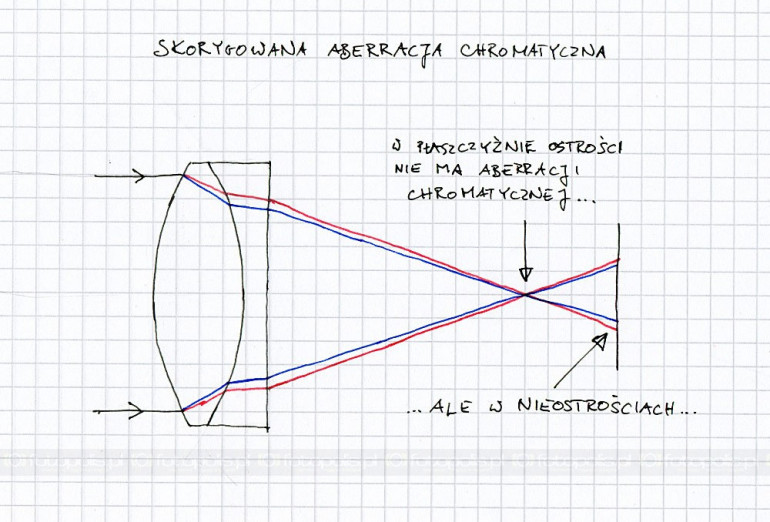 SKORYGOWANA ABERRACJA CHROMATYCZNA
W PŁASZCZYŹNIE OSTROŚCI
NIE MA ABERRACJI
CHROMATYCZNEJ...
...ALE W NIEOSTROŚCIACH...